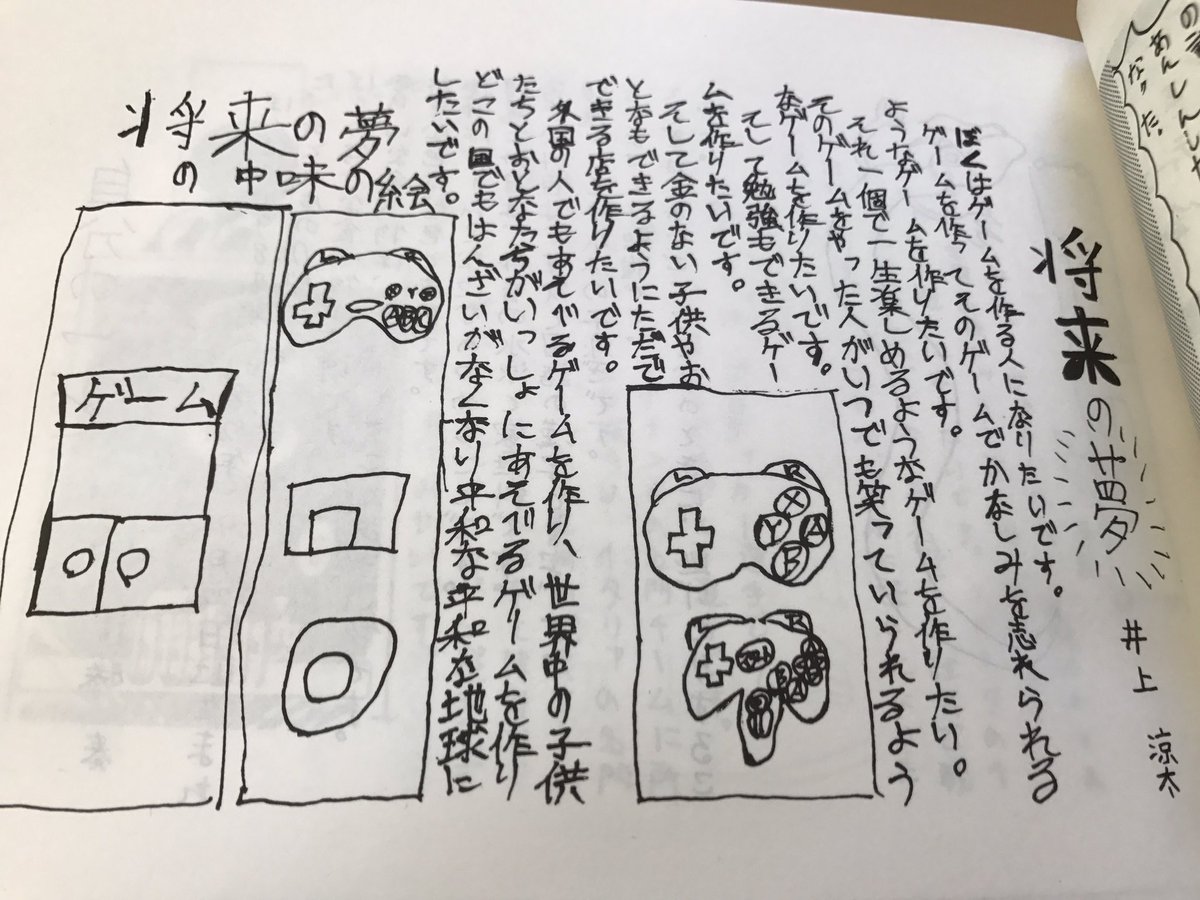 将来の夢
井上 涼太
ぼくはゲームを作る人になりたいです。
ゲームを作ってそのゲームでかなしみを忘れられる
ようなゲームを作りたいです。
それ一個で一生楽しめるようなゲームを作りたい。
そのゲームをやった人がいつでも笑っていられるよう
なゲームを作りたいです。
そして勉強もできるゲー
ムを作りたいです。
そして金のない子供やお
となもできるようにただで
できる店を作りたいです。
外国の人でもあそべるゲームを作り、世界中の子供
たちとおとなたちがいっしょにあそべるゲームを作り
どこの国でもはんざいがなくなり平和な平和な地球に
したいです。
将来の夢
の中味の絵
L R
X
Y A
B
L R
Y
A B C
ゲーム
あんしん